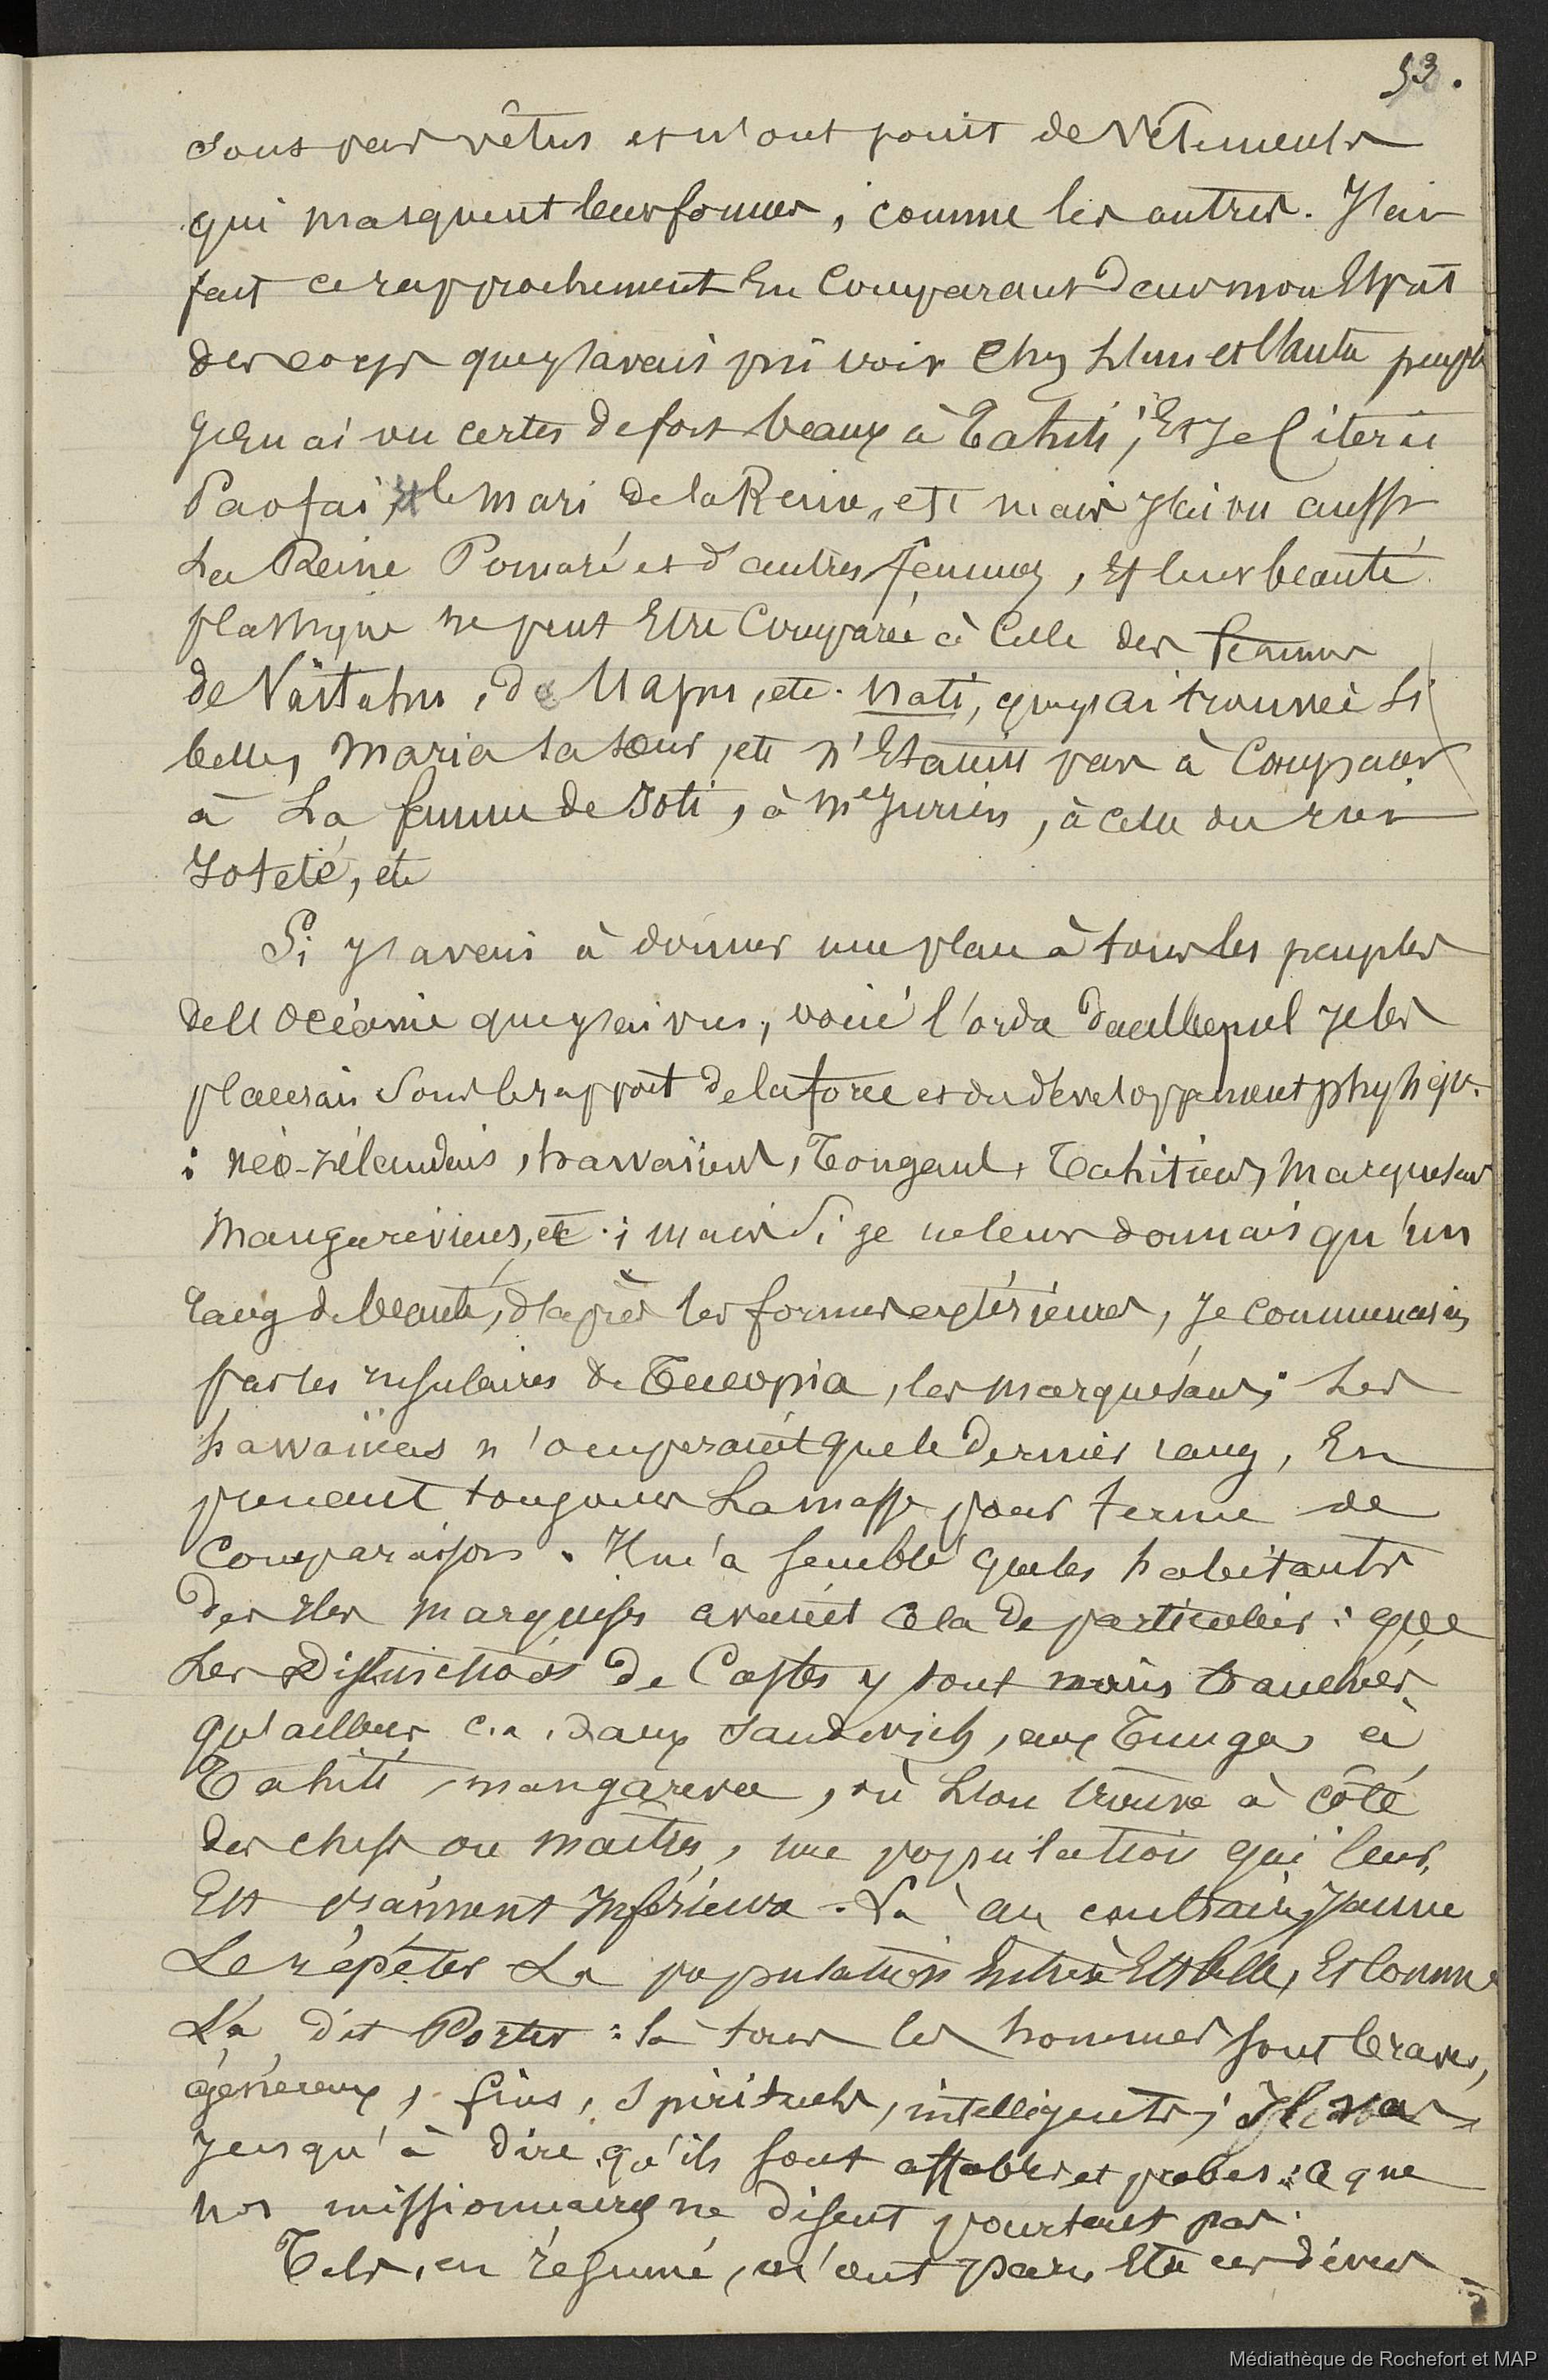 53.
sont peu vêtus et n'ont point de vêtements
qui masquent leurs formes, comme les autres. J'ai
fait ce rapprochement En Comparant dans mon Esprit
des corps que j'avais pu voir chez l'un et l'autre peuple
j'en ai vu certes de fort beaux à Tahiti; Et je citerai
Paofai, le mari de la Reine, etc mais j'ai vu aussi
La Reine Pomaré et d'autres femmes, Et leur beauté
plastique ne peut Etre Comparée à Celle des femmes
de Vaitahu, de Uapu, etc. Nati, que j'ai trouvée si
belle, Maria sa sœur, etc n'Etaient pas à Comparer
à La femme de Ioti, à Me Jurien, à celle du roi
Iotété, etc
Si j'avais à donner une place à tous les peuples
de l'Océanie que j'ai vus, voici l'ordre dans lequel je les
placerais sous le rapport de la force et du développement physique
: néo-zélandais, hawaiiens, Tongans, Tahitiens, Marquésans
Mangaréviens, etc; mais Si je ne leur donnais qu'un
rang de beauté, d'après les formes extérieures, je commencerais
par les insulaires de Tucopia, les marquésans; Les
hawaiiens n'occuperaient que le dernier rang, En
prenant toujours La masse pour terme de
Comparaison. Il m'a semblé que les habitants
des Iles Marquises avaient cela de particulier: que
Les Distinctions de Castes y sont moins tranchées
qu'ailleurs c.a.d aux Sandwich, aux Tunga, à
Tahiti, mangareva, où L'on trouve à côté
des chefs ou maîtres, une population qui leur
Est vraiment Inférieure. Là au contraire, j'aime
Le répéter La population Entière Est belle, Et Comme
L'a dit Porter: là tous les hommes sont braves,
généreux, fins, spirituels, intelligents; Il va
jusqu'à dire qu'ils sont affables et probes: ce que
nos missionnaires ne disent pourtant pas.
Tels, en résumé, m'ont paru Etre ces divers